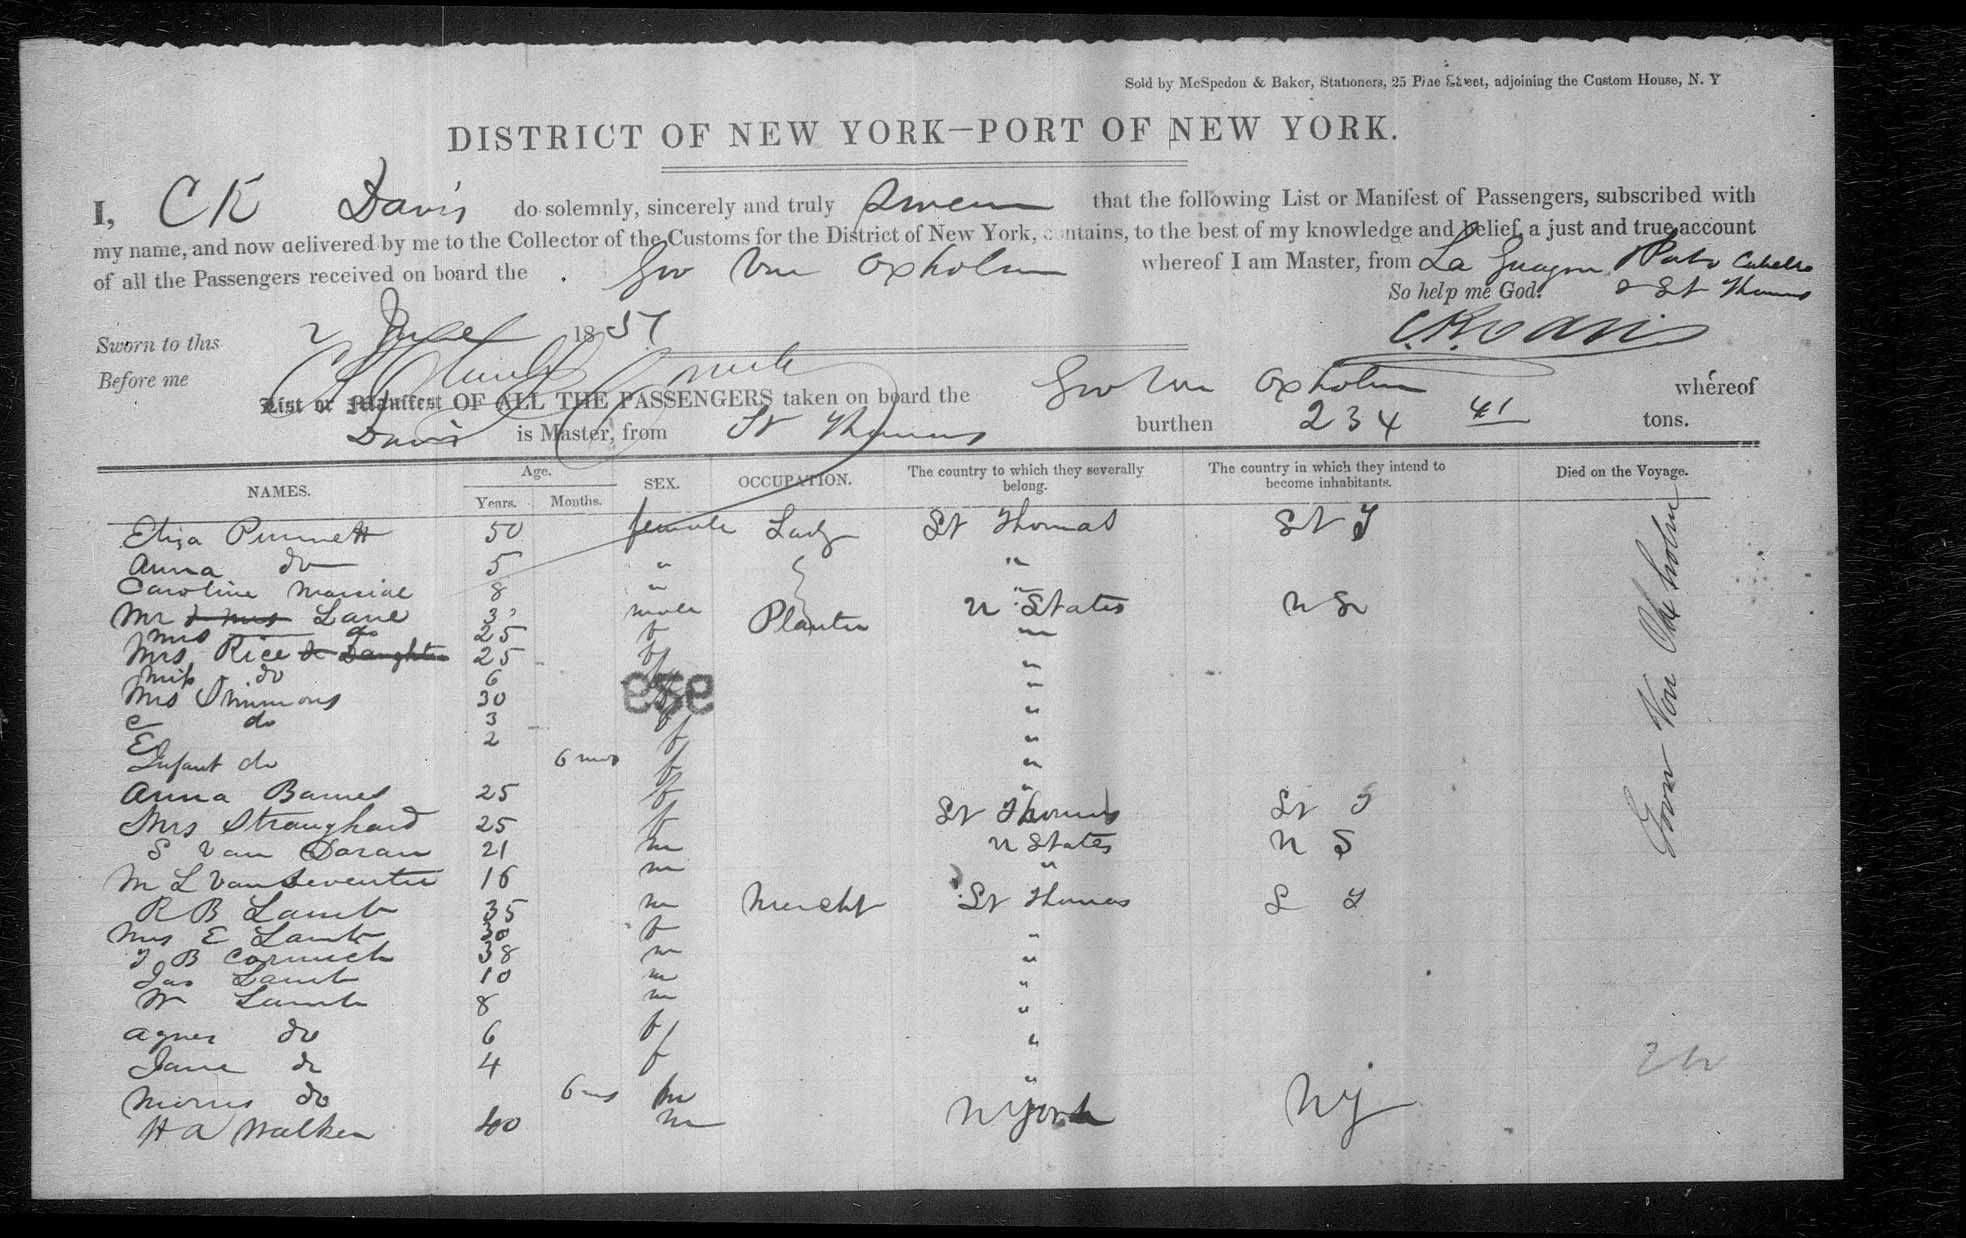 Sold by McSpedon & Baker, Stationers, 25 Pine Street, adjoining the Custom House, N. Y
DISTRICT OF NEW YORK—PORT OF NEW YORK.
I, C K Davis do solemnly, sincerely and truly Swear that the following List or Manifest of Passengers, subscribed with
my name, and now delivered by me to the Collector of the Customs for the District of New York, contains, to the best of my knowledge and belief, a just and true account
of all the Passengers received on board the Gov Von Oxholm whereof I am Master, from La Guayra Porto Cabello
So help me God. & St Thomas
Sworn to this 2 June 1857 C.K. Davis
Before me
List or Manifest OF ALL THE PASSENGERS taken on board the Gov Von Oxholm whereof
Davis is Master, from St Thomas burthen 234 41 tons.
NAMES. Age. Years. Months. SEX. OCCUPATION. The country to which they severally belong. The country in which they intend to become inhabitants. Died on the Voyage.
Eliza Punnett 50 female Lady St Thomas St T
Anna do 5 " "
Caroline 8 " "
Mr & Mrs Lane male Planter U States U S
Mrs do 25 f "
Mrs Rice & Daughter 25 f "
Miss do 6 "
Mrs Simmons 30 "
C do 3 f "
E 2 f "
Infant do 6 mos f "
Anna Barnes 25 f "
Mrs Straughard 25 f St Thomas St T
S Van Doran 21 m U States U S
M L Vandeventer 16 m "
R B Lamb 35 m Mercht St Thomas S T
Mrs E Lamb 30 f "
J B Cormick 38 m "
Jas Lamb 10 m "
W Lamb 8 m "
Agnes do 6 f "
Jane do 4 f "
Morris do 6 ms m "
H A Walker 40 m N York NY
Gov Von Oxholm